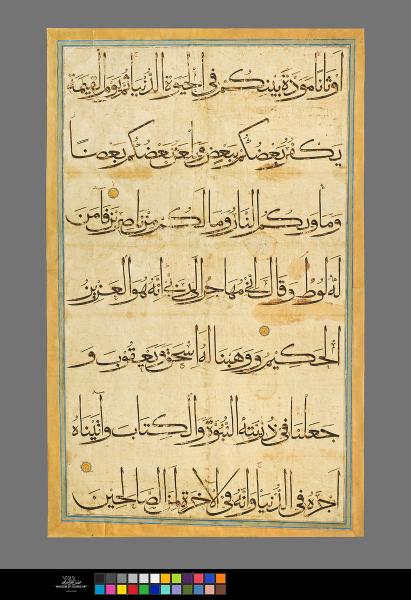 اوثانا مودة بينكم في الحيوة الدنيا ثم يوم القيمة
يكفر بعضكم ببعض ويلعن بعضكم بعضا
وماويكم النار وما لكم من ناصرين فآمن
له لوط وقال اني مهاجر الى ربي انه هو العزيز
الحكيم ووهبنا له اسحق ويعقوب و
جعلنا في ذريته النبوة والكتاب وآتيناه
اجره في الدنيا وانه في الاخرة لمن الصالحين
MUSEUM OF ISLAMIC ART